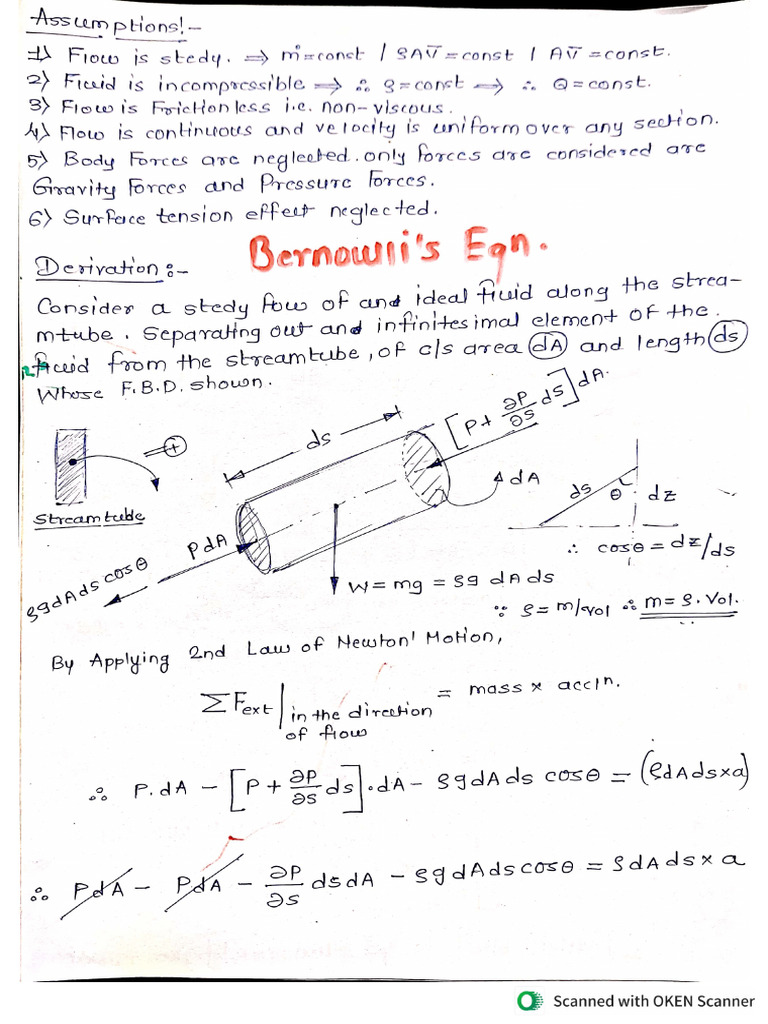 Assumptions!-
1) Flow is stedy. ⟹ ṁ=const / ρAV̅=const / AV̅=const.
2) Fluid is incompressible ⟹ ∴ ρ=const ⟹ ∴ Q=const.
3) Flow is Frictionless i.e. non-viscous.
4) Flow is continuous and velocity is uniform over any section.
5) Body Forces are neglected. only forces are considered are
Gravity Forces and Pressure Forces.
6) Surface tension effect neglected.
Bernowlli's Eqn.
Derivation:-
Consider a stedy fow of and ideal fluid along the strea-
mtube. Separating out and infinitesimal element of the
fluid from the streamtube, of c/s area dA and length ds
Whose F.B.D. shown.
[P+ ∂P/∂s ds]dA.
ds
+
dA
ds θ dz
streamtube
PdA
∴ cosθ = dz/ds
ρgdAds cosθ
W = mg = ρg dA ds
∵ ρ = m/vol ∴ m = ρ. Vol.
By Applying 2nd Law of Newton' Motion,
ΣFext | in the direction of flow = mass × accln.
∴ P.dA - [P + ∂P/∂s ds].dA - ρgdAds cosθ = (ρdAds×a)
∴ PdA - PdA - ∂P/∂s dsdA - ρgdAdscosθ = ρdAds × a
Scanned with OKEN Scanner